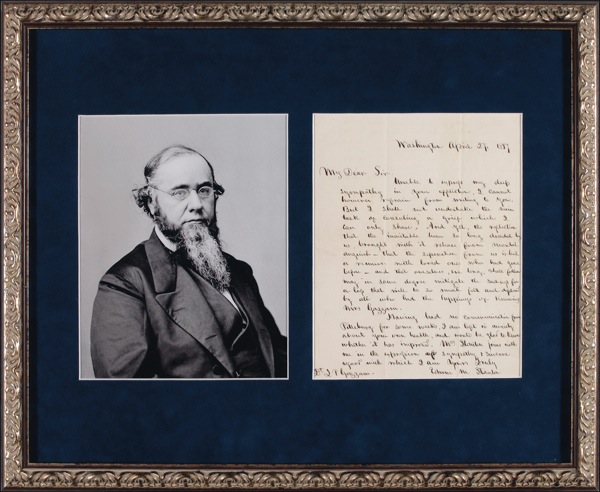 Washington April 27 1857
My Dear Sir
Unable to express my deep
sympathy in your affliction, I cannot
however refrain from writing to you.
But I shall not undertake the
task of consoling a grief which I
can only share. And yet the reflection
that the inevitable
us brought with it release from mortal
anguish – that the separation from us
a reunion with loved ones who had gone
before – and that ourselves, ere long, shall follow
may in some degree mitigate the
a loss that will be so much felt and
by all who had the happiness of knowing
Mrs Gazzam.
Having had no communication from
Pittsburg for some weeks, I am left in anxiety
about your own health, and would be glad to know
whether it has improved. Mrs Stanton joins with
me in the expression of sympathy & sincere
regard with which I am Yours Truly
Dr. Gazzam Edwin M. Stanton